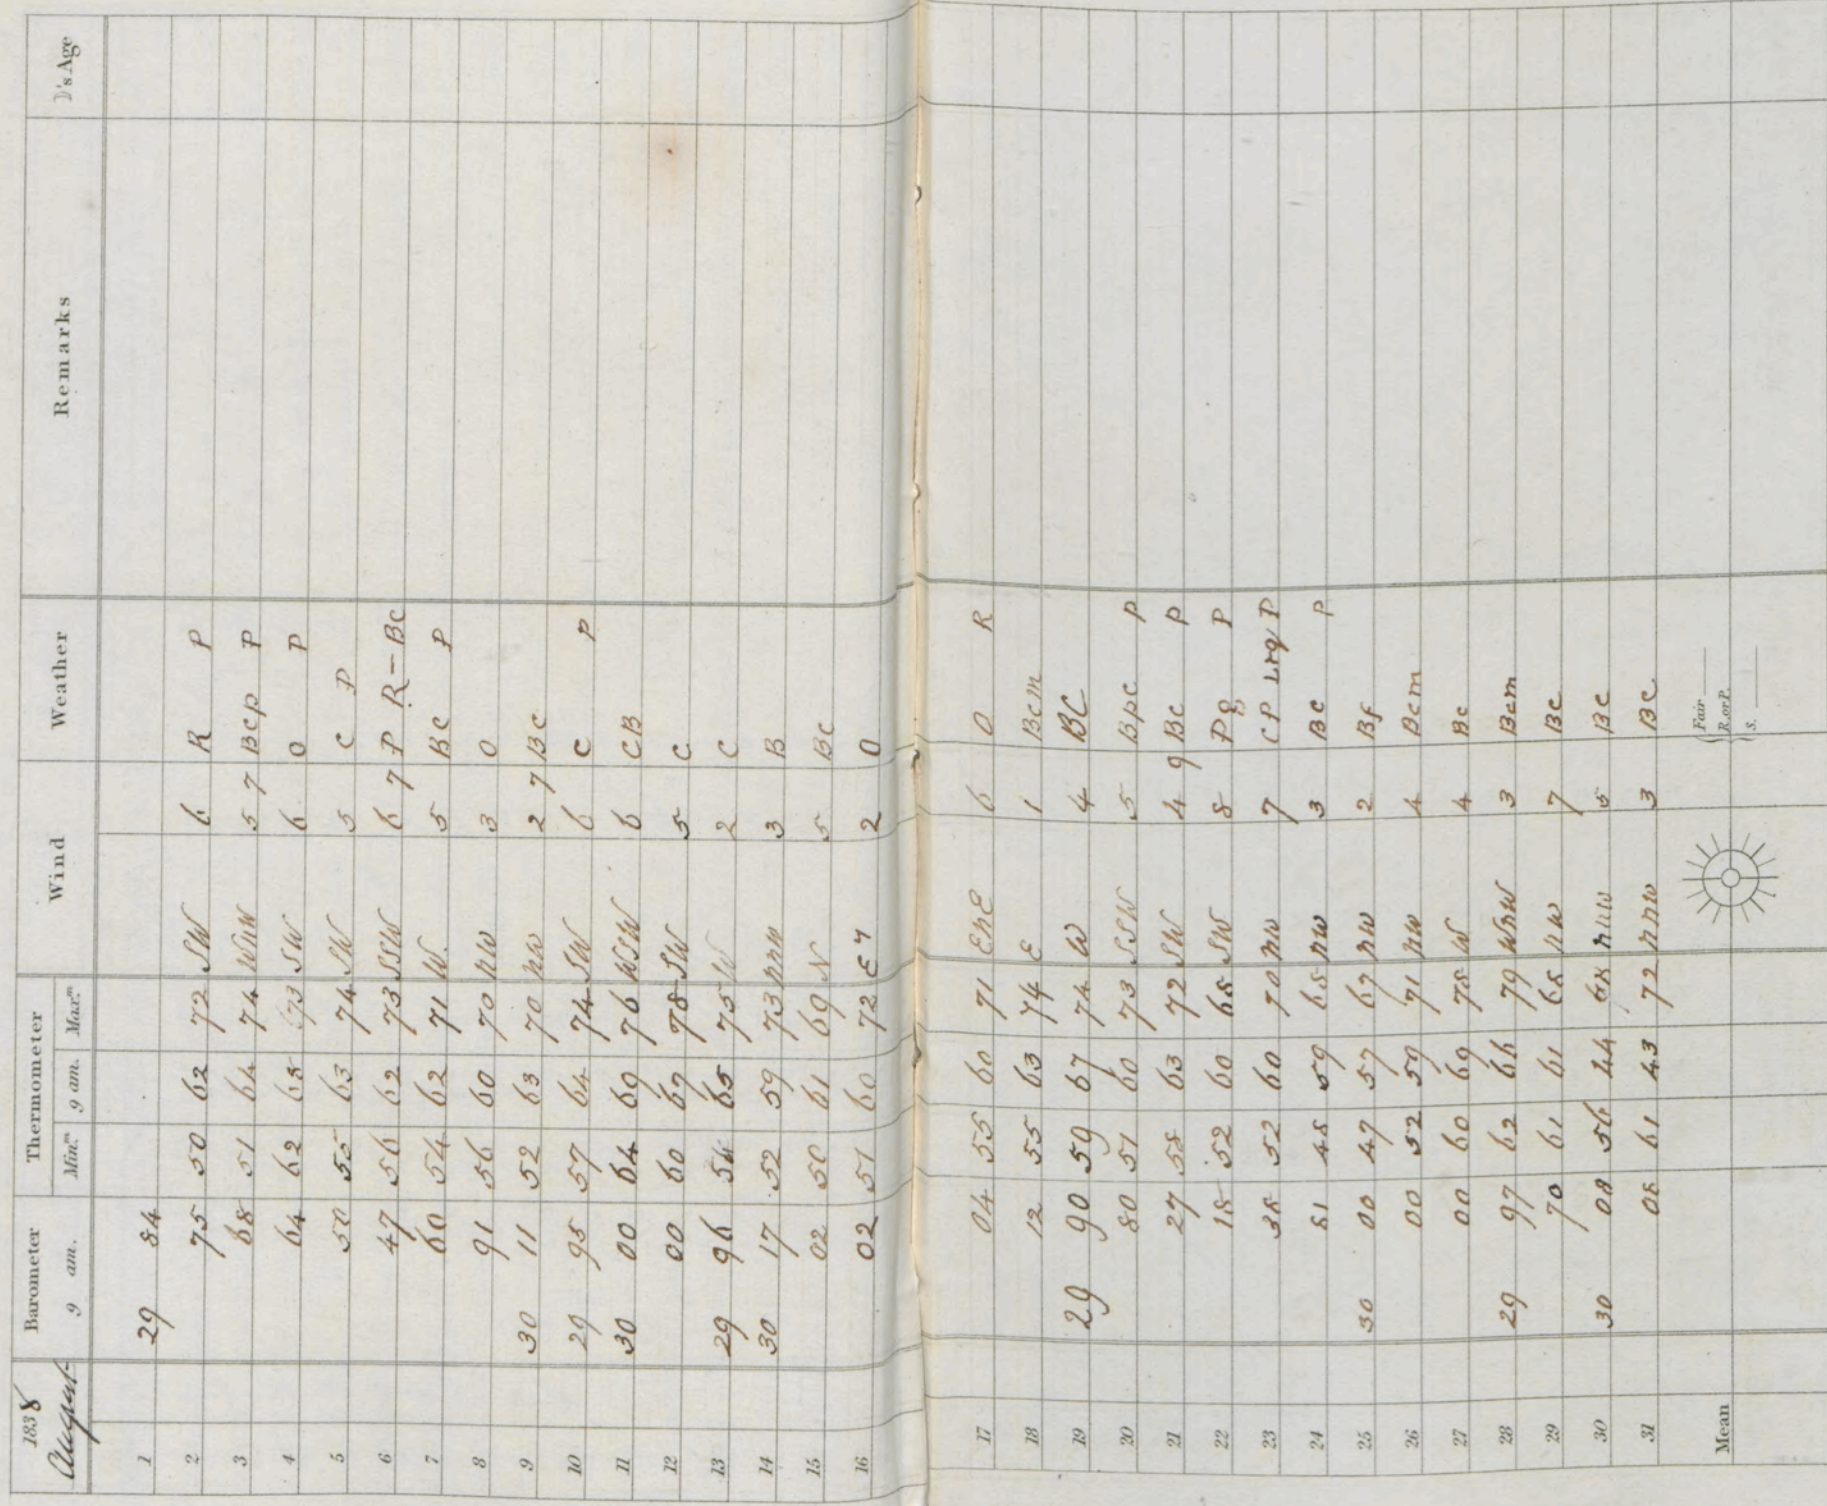 1838 August Barometer 9 am. Thermometer Min.m 9 am. Max.m Wind Weather Remarks ☽'s Age
1 29 84
2 75 50 62 72 SW 6 R P
3 68 51 64 74 WNW 5 7 Bcp P
4 64 62 68 73 SW 6 O P
5 50 55 63 74 SW 5 C P
6 47 56 62 73 SSW 6 7 P R–Bc
7 60 54 62 71 W. 5 BC P
8 91 56 60 70 NW 3 O
9 30 11 52 63 70 NW 2 7 Bc
10 29 95 57 64 74 SW 6 C P
11 30 00 64 69 76 WSW 6 CB
12 00 60 67 78 SW 5 C
13 29 96 54 65 75 W 2 C
14 30 17 52 59 73 NNW 3 B
15 02 50 61 69 N 5 BC
16 02 51 60 72 E 2 O
17 04 55 60 71 ENE 6 O R
18 12 55 63 74 E 1 Bcm
19 29 90 59 67 74 W 4 BC
20 80 51 60 73 SSW 5 Bpc P
21 27 58 63 72 SW 4 9 Bc P
22 18 52 60 68 SW 8 Pg P
23 38 52 60 70 NW 7 CP Lrq P
24 81 48 59 68 NW 3 Bc P
25 30 00 47 57 67 NW 2 Bf
26 00 52 59 71 NW 4 Bcm
27 00 60 69 78 W 4 Bc
28 29 97 62 66 79 WNW 3 Bcm
29 70 61 61 68 NW 7 Bc
30 30 08 56 44 68 NNW 5 BC
31 08 61 43 72 NNW 3 BC
Mean Fair
R. or P.
S.